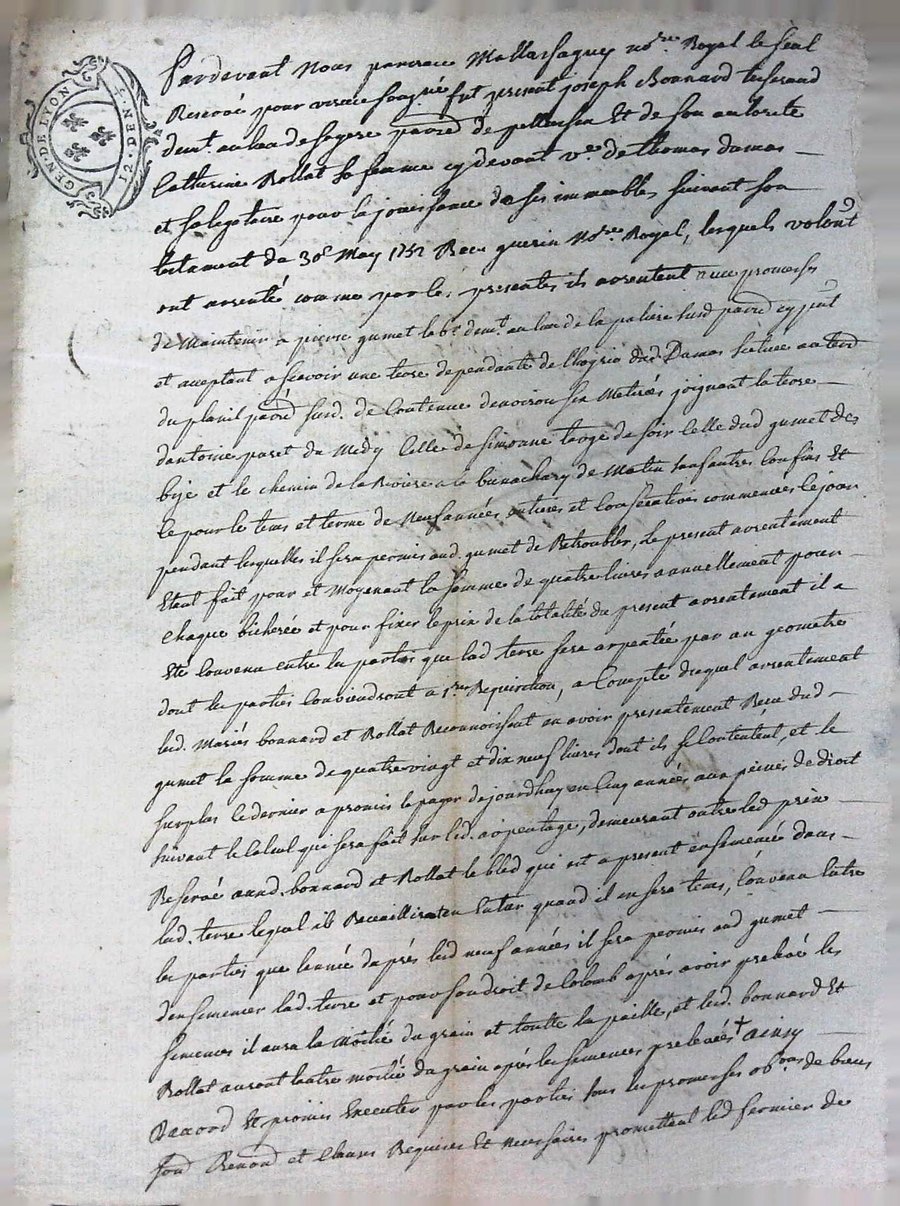 GEN. DE LYON
12 DEN. 4.
Pardevant Nous pancrace Mallassagny no.re Royal le seul
Reservé pour soussigné fut present joseph Bonnard tisserand
demt. au lieu de parr. de pellussin Et de son autorité
Catherine Rollat sa femme cy devant v.e de thomas damas
et sa legataire pour la jouissance de ses immeubles suivant son
testament du 30e May 1752 Recu guerin No.re Royal, lesquels volont
ont arrenté comme par les presentes ils arrentent avec promesses
de Maintenir a pierre gumet le b. demt. au lieu de la paliere susd parr. cy pnt
et acceptant a scavoir une terre dependante de l'hoyrie dud Damas scituée au terr
du planil parr. susd. de Contenue denviron six Meterés joignant la terre
dantoine paret du Medy Celle de simonne de soir Celle dud gumet de
bize et le chemin de la Riviere a la de Matin sauf autres Confins Et
Ce pour le tems et terme de Neuf années entieres et Consecutives commencés Cejour
pendant lesquelles il sera permis aud. gumet de Retroubler, Le present arrentement
Etant fait pour et Moyenant la somme de quatre livres annuellement pour
chaque bicherée et pour fixer le prix de la totalité du present arrentement il a
Eté Convenu entre les parties que lad terre sera arpentée par un geometre
dont les parties Conviendront a 1.re Requisition, a Compte duquel arrentement
led. Mariés bonnard et Rollat Reconnoissent en avoir presentement Recu dud
gumet la somme de quatre vingt et dix neuf livres dont ils se Contentent, et le
surplus Ce dernier a promis le payer dejourdhuy en Cinq années aux peines de droit
suivant le Calcul qui sera fait sur led. arpentage, demeurant outre led prix
Reservé auxd. bonnard et Rollat le bled qui est a present ensemencé dans
lad. terre lequel ils Recueilliront en Entier quand il en sera tems, Convenu Entre
les parties que lannée daprés lesd neuf années il sera permis aud gumet
densemencer lad. terre et pour son droit de Colomb aprés avoir prelevé les
semences il aura la moitié du grain et toutte la paille, et lesd. bonnard Et
Rollat auront lautre moitié du grain aprés les semences prelevées † ainsy
Daccord Et promis Executer par les parties sous les promesses ob.ons de biens
soum. Renond et Clauses Requises Et necessaires promettent lesd fermier de